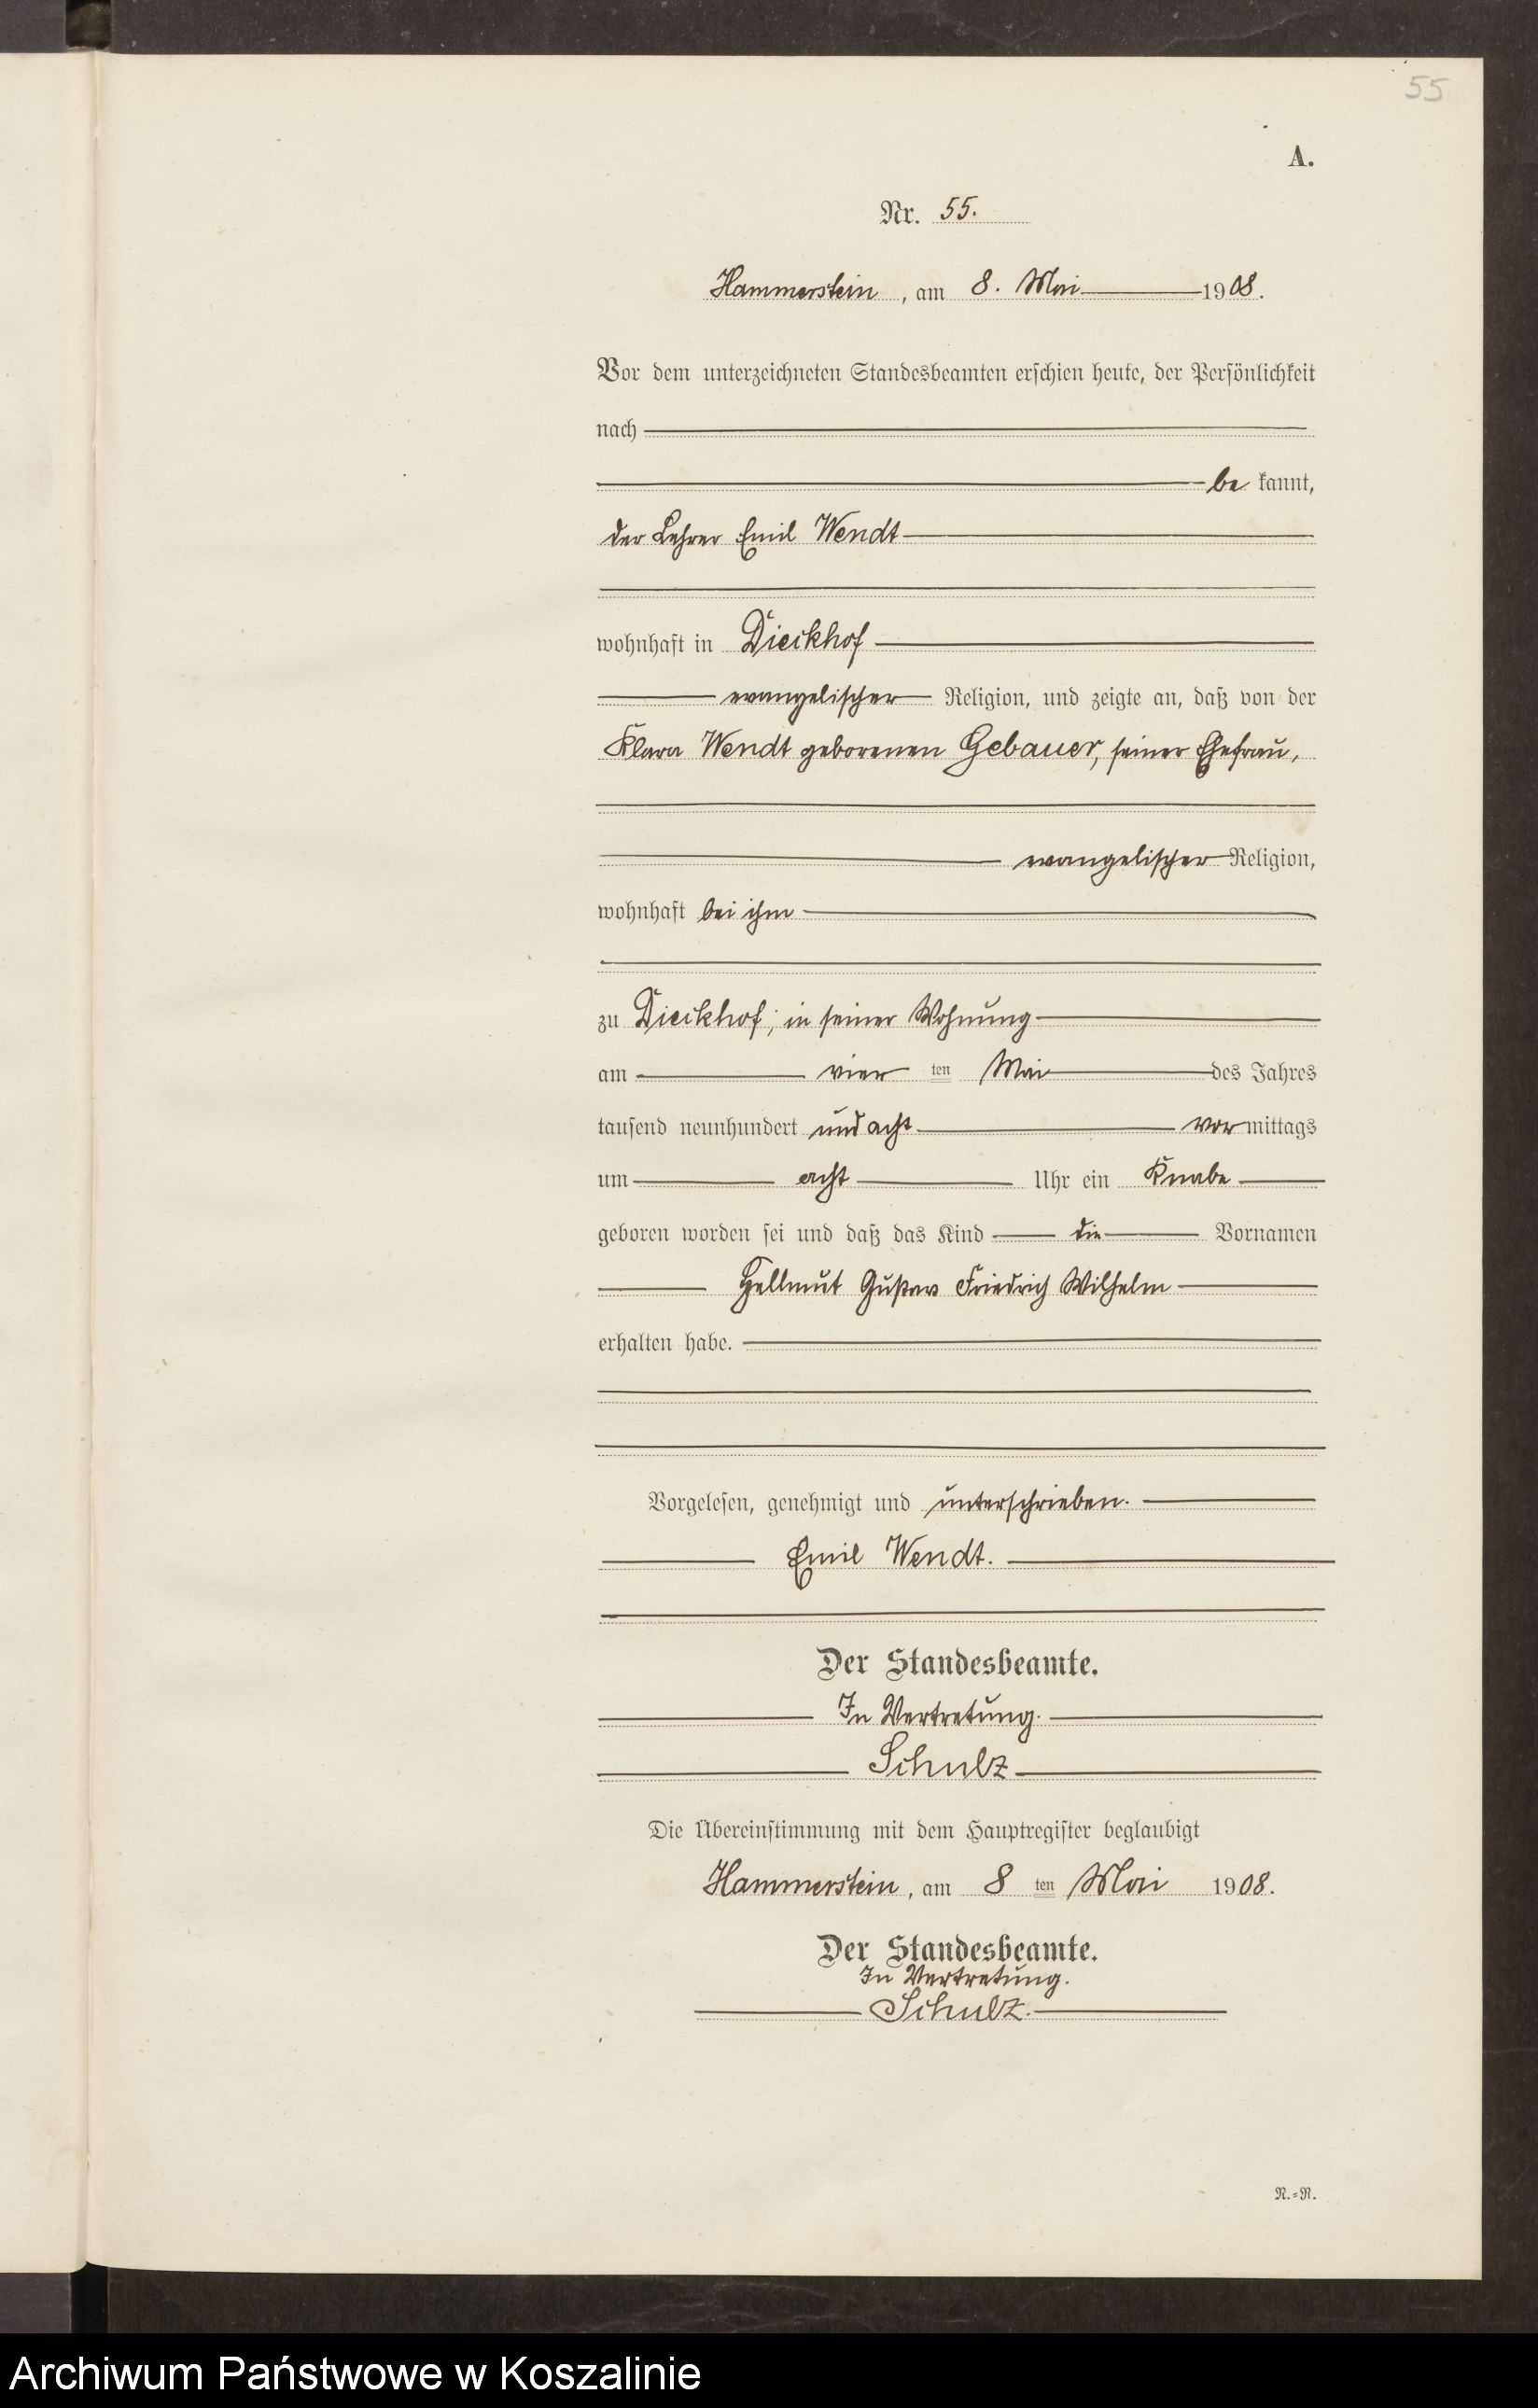 55
A.
Nr. 55.
Hammerstein, am 8. Mai 1908.
Vor dem unterzeichneten Standesbeamten erschien heute, der Persönlichkeit
nach
be kannt,
der Lehrer Emil Wendt
wohnhaft in Dieckhof
evangelischer Religion, und zeigte an, daß von der
Klara Wendt geborenen Gebauer, seiner Ehefrau,
evangelischer Religion,
wohnhaft bei ihm
zu Dieckhof, in seiner Wohnung
am vier ten Mai des Jahres
tausend neunhundert und acht vormittags
um acht Uhr ein Knabe
geboren worden sei und daß das Kind die Vornamen
Hellmut Gustav Friedrich Wilhelm
erhalten habe.
Vorgelesen, genehmigt und unterschrieben.
Emil Wendt.
Der Standesbeamte.
In Vertretung.
Schulz
Die Übereinstimmung mit dem Hauptregister beglaubigt
Hammerstein, am 8 ten Mai 1908.
Der Standesbeamte.
In Vertretung.
Schulz.
N.=R.
Archiwum Państwowe w Koszalinie